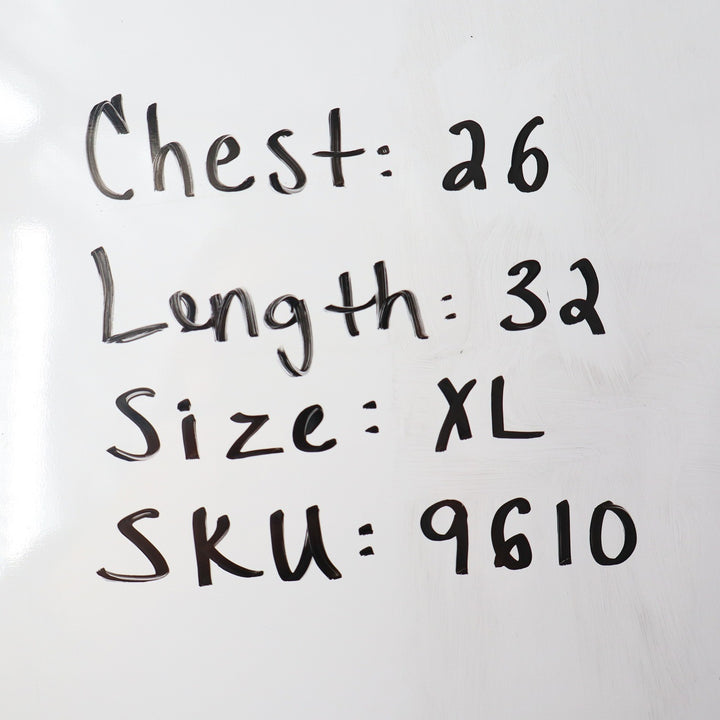 Chest: 26
Length: 32
Size: XL
SKU: 9610